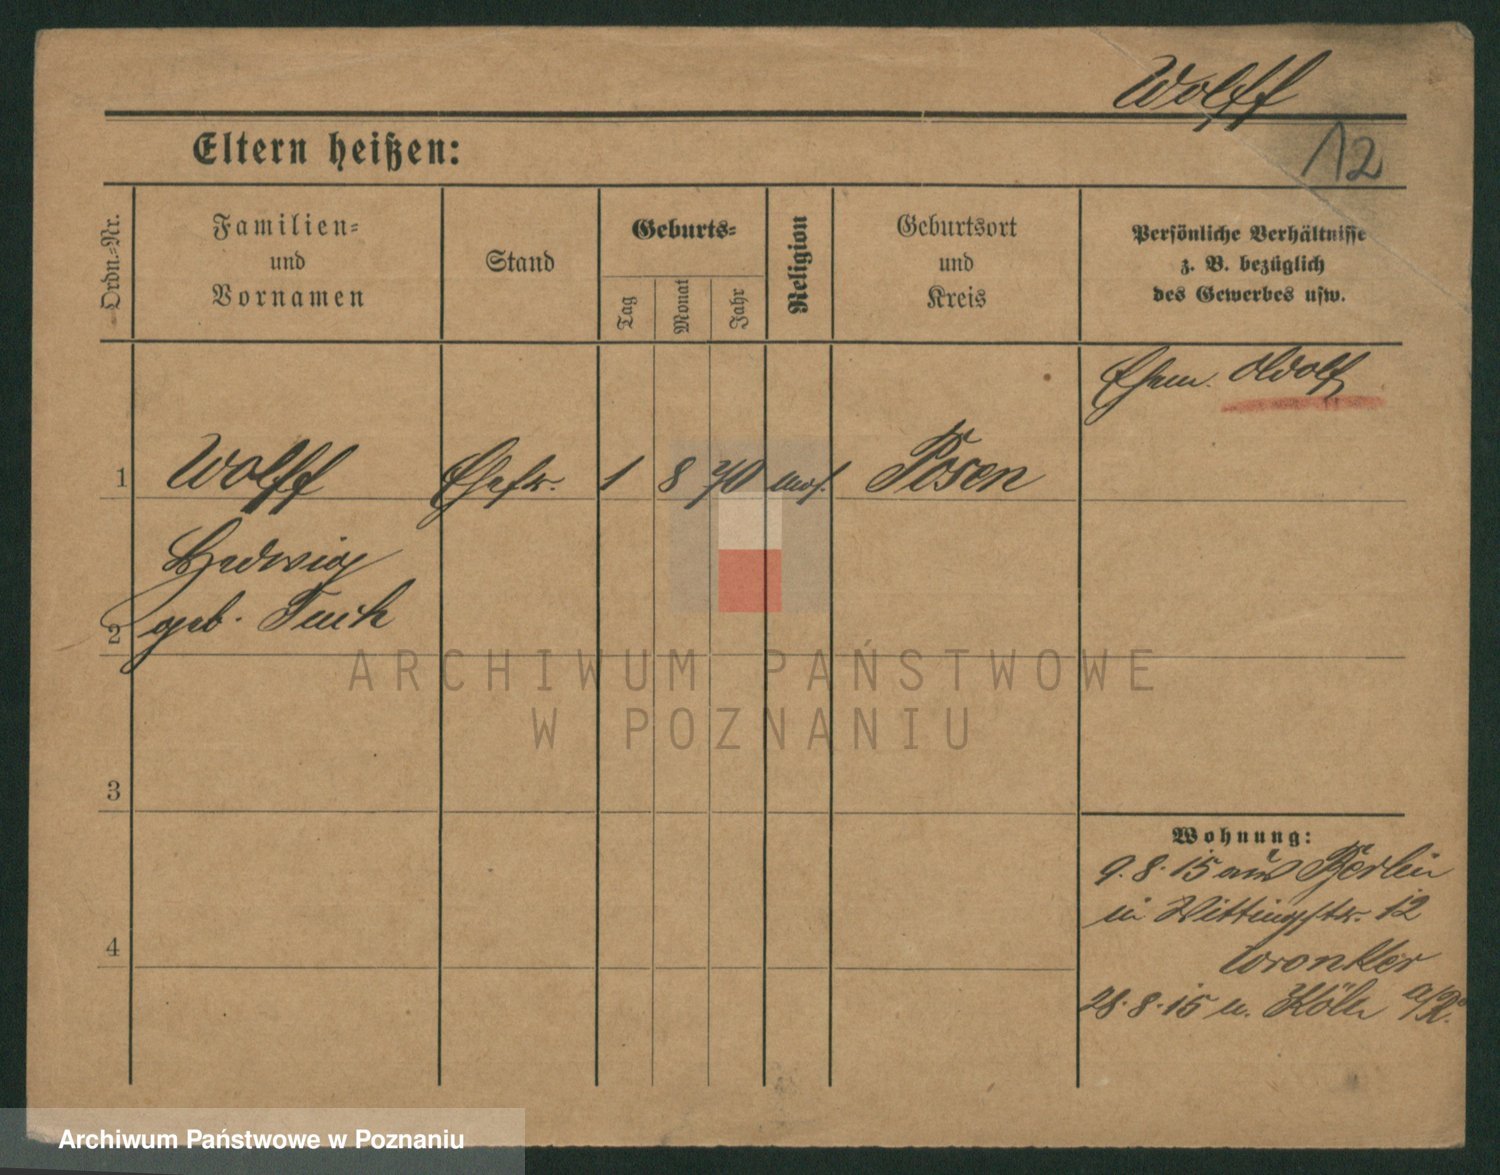 Wolff
12
Eltern heißen:
Ordn.-Nr.
Familien-
und
Vornamen
Stand
Geburts-
Tag
Monat
Jahr
Religion
Geburtsort
und
Kreis
Persönliche Verhältnisse
z. B. bezüglich
des Gewerbes usw.
Ehem. Adolf
1 Wolff Ehefr. 1 8 70 mos. Posen
Hedwig
2 geb. Tuch
ARCHIWUM PAŃSTWOWE
W POZNANIU
3
Wohnung:
9.8.15 aus Berlin
in Wittingstr. 12
Wronker
4
28.8.15 n. Köln a/R.
Archiwum Państwowe w Poznaniu